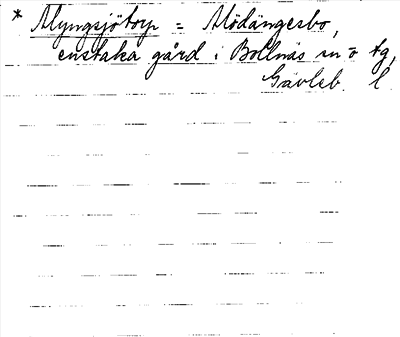 * Myngsjötorp = Mödängesbo,
enstaka gård i Bollnäs sn o tg,
Gävleb. l.